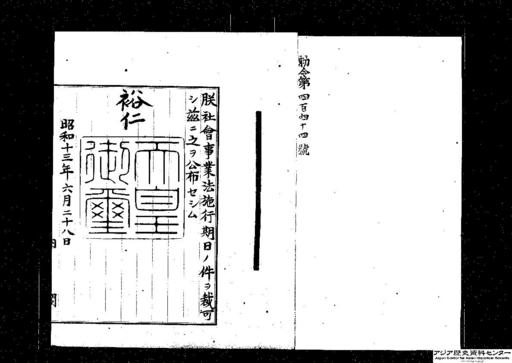 勅令第四百四十四號
朕社會事業法施行期日ノ件ヲ裁可
シ茲ニ之ヲ公布セシム
裕仁
天皇御璽
昭和十三年六月二十八日
内閣
アジア歴史資料センター
Japan Center for Asian Historical Records